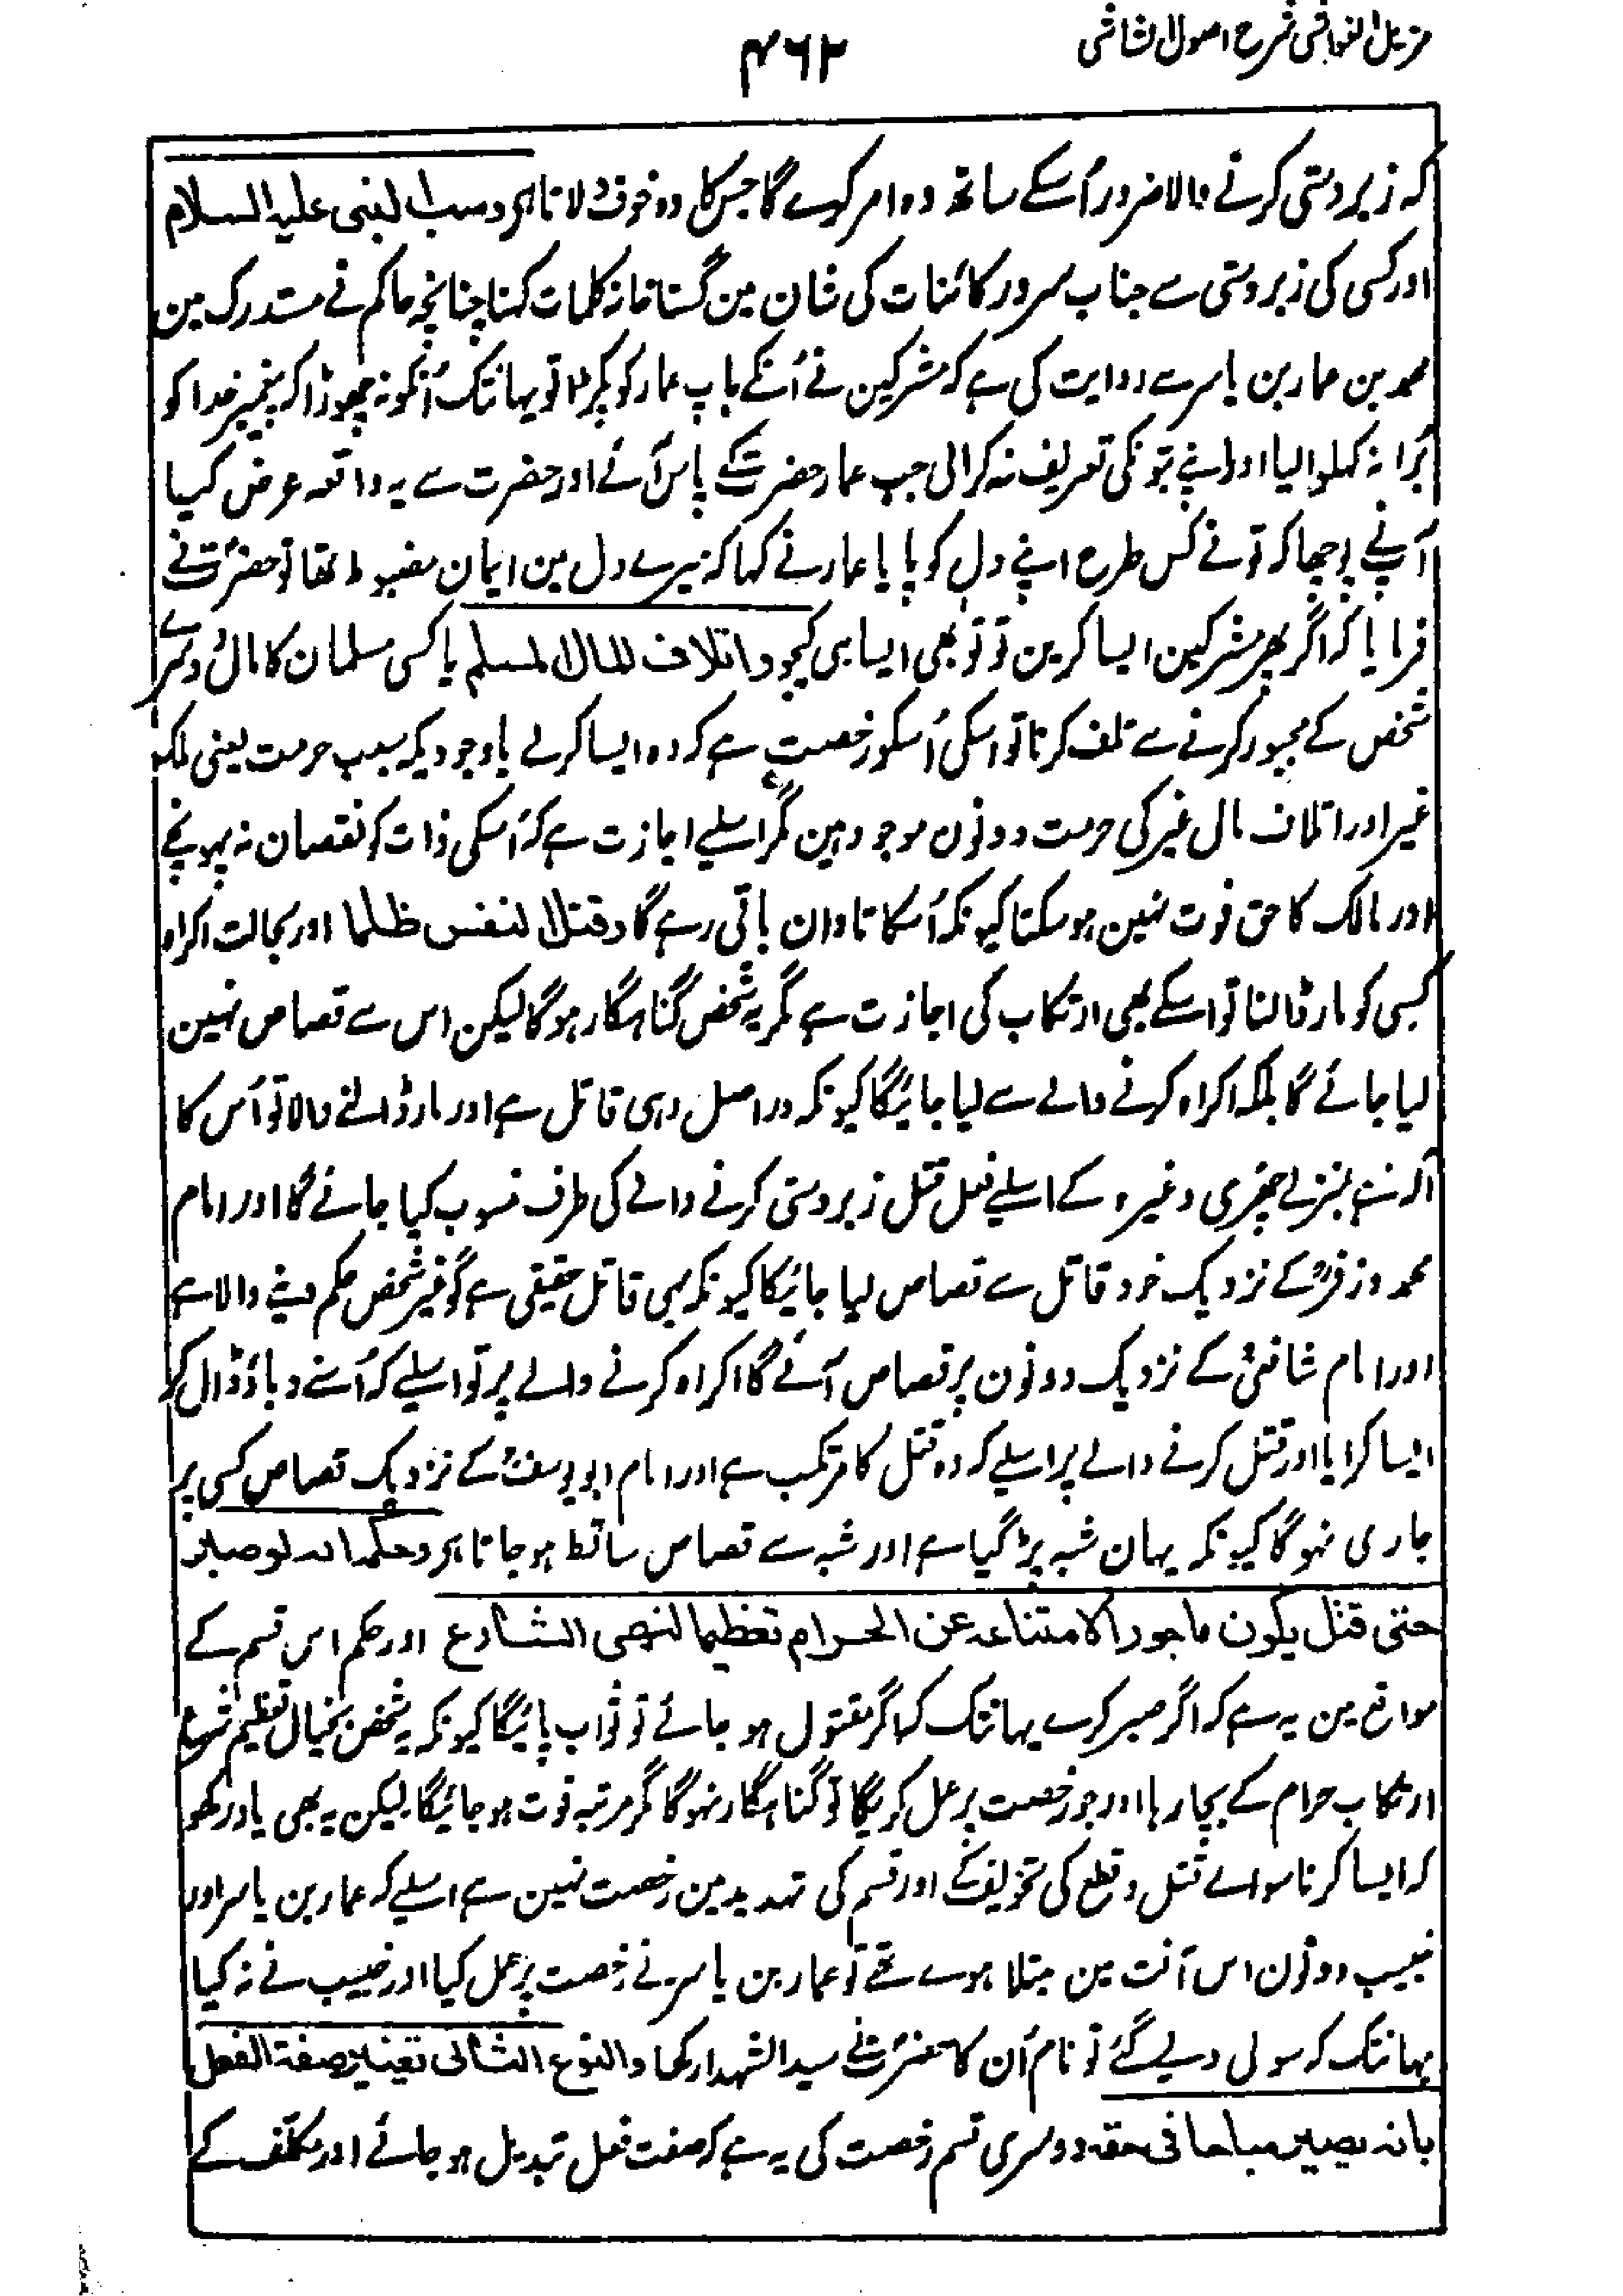 مزیل الغواشی شرح اصول الشاشی
۴۶۲
کہ زبردستی کرنے والا ضرور اُسکے ساتھ وہ امر کرے گا جس کا وہ خوف لاتا ہر وسب النبی علیہ السلام
اور کسی کی زبردستی سے جناب سرور کائنات کی شان مین گستاخانہ کلمات کہنا چنانچہ حاکم نے مستدرک مین
محمد بن عمار بن یاسر سے روایت کی ہے کہ مشرکین نے اُنکے باپ عمار کو پکڑا تو یہانتک اُنکو نہ چھوڑا کہ پیغمبر خدا کو
بُرا نہ کہلوا لیا اور اپنے بتونکی تعریف نہ کرالی جب عمار حضرت کے پاس آئے اور حضرت سے یہ واقعہ عرض کیا
آپنے پوچھا کہ تو نے کس طرح اپنے دل کو پایا عمار نے کہا کہ میرے دل مین ایمان مضبوط تھا تو حضرت نے
فرمایا کہ اگر پھر مشرکین ایسا کرین تو تو بھی ایسا ہی کیجو واتلاف المال المسلم یا کسی مسلمان کا مال دوسرے
شخص کے مجبور کرنے سے تلف کرنا تو اسکی اُسکو رخصت ہے کہ وہ ایسا کرلے باوجودیکہ سبب حرمت یعنی ملک
غیر اور اتلاف مال غیر کی حرمت دونون موجود ہین مگر اسلیے اجازت ہے کہ اُسکی ذات کو نقصان نہ پہونچے
اور مالک کا حق فوت نہین ہوسکتا کیونکہ اُسکا تاوان باقی رہے گا وقتل النفس ظلما اور بحالت اکراہ
کسی کو مار ڈالنا تو اسکے بھی ارتکاب کی اجازت ہے مگر یہ شخص گناہگار ہوگا لیکن اس سے قصاص نہین
لیا جائے گا بلکہ اکراہ کرنے والے سے لیا جائیگا کیونکہ دراصل وہی قاتل ہے اور مار ڈالنے والا تو اُس کا
آلہ ہے بمنزلے چھری وغیرہ کے اسلیے فعل قتل زبردستی کرنے والے کی طرف منسوب کیا جائے گا اور امام
محمد و زفرؒ کے نزدیک خود قاتل سے قصاص لیا جائیگا کیونکہ یہی قاتل حقیقی ہے گو غیر شخص حکم دینے والا ہے
اور امام شافعیؒ کے نزدیک دونون پر قصاص آئے گا اکراہ کرنے والے پر تو اسلیے کہ اُسنے دباؤ ڈال کر
ایسا کرایا اور قتل کرنے والے پر اسلیے کہ وہ قتل کا مرتکب ہے اور امام ابو یوسفؒ کے نزدیک قصاص کسی پر
جاری نہوگا کیونکہ یہان شبہ پڑ گیا ہے اور شبہ سے قصاص ساقط ہو جاتا ہر وحکمہ انہ لو صبر
حتی قتل یکون ماجورا لامتناعہ عن الحرام تعظیما لنہی الشارع اور حکم اس قسم کے
مواقع مین یہ ہے کہ اگر صبر کرے یہانتک کہ اگر مقتول ہو جائے تو ثواب پائیگا کیونکہ یہ شخص بخیال تعظیم شرع
ارتکاب حرام کے بچا رہا اور جو رخصت پر عمل کریگا تو گناہگار نہوگا مگر مرتبہ فوت ہو جائیگا لیکن یہ بھی یاد رکھو
کہ ایسا کرنا سواے قتل و قطع کی تخویف کے اور قسم کی تہدید مین رخصت نہین ہے اسلیے کہ عمار بن یاسر اور
خبیب دونون اس آفت مین مبتلا ہوے تھے تو عمار بن یاسر نے رخصت پر عمل کیا اور خبیب نے نہ کیا
یہانتک کہ سولی دیے گئے تو نام اُن کا حضرت نے سید الشہدا رکھا والنوع الثانی تغییر صفۃ الفعل
بانہ یصیر مباحا فی حقہ دوسری قسم رخصت کی یہ ہے کہ صفت فعل تبدیل ہو جائے اور مکلف کے